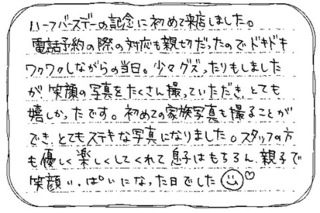 ハーフバースデーの記念に初めて来店しました。
電話予約の際の対応も親切だったのでドキドキ
ワクワクしながらの当日。少々グズったりもしました
が笑顔の写真をたくさん撮っていただき、とても
嬉しかったです。初めての家族写真も撮ることが
でき、とてもステキな写真になりました。スタッフの方
も優しく楽しくしてくれて息子はもちろん、親子で
笑顔いっぱいになった日でした